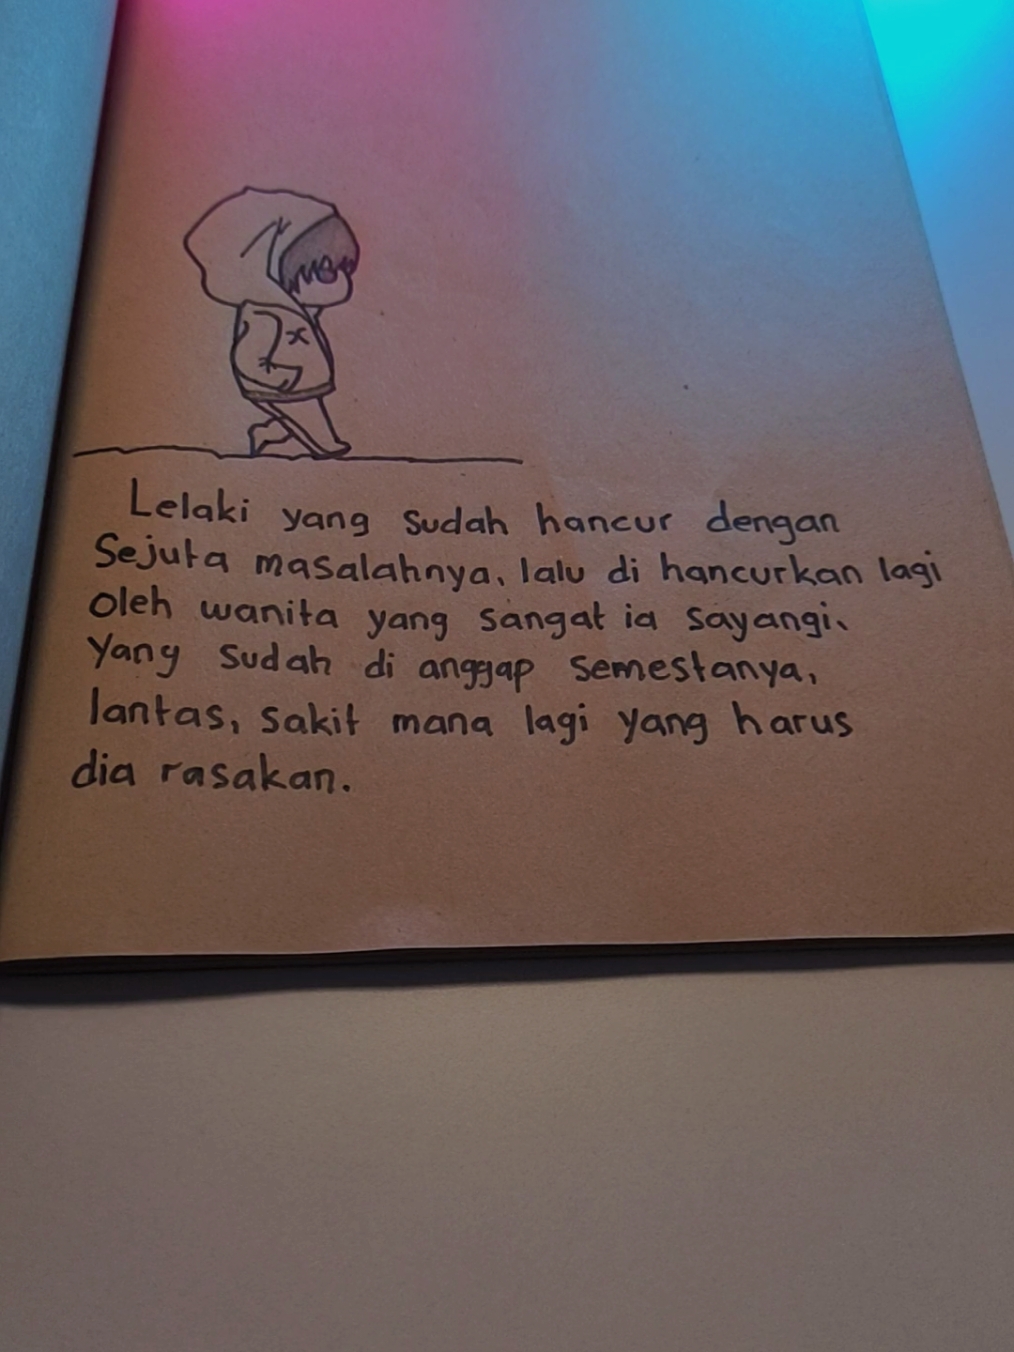 Lelaki yang sudah hancur dengan
Sejuta masalahnya, lalu di hancurkan lagi
oleh wanita yang sangat ia sayangi,
Yang sudah di anggap semestanya,
lantas, sakit mana lagi yang harus
dia rasakan.